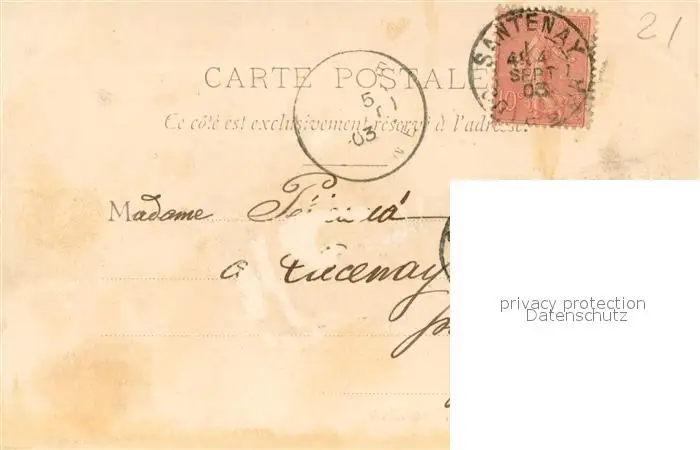 21
SANTENAY
4
SEPT
03
CARTE POSTALE
5
03
Ce côté est exclusivement réservé à l'adresse.
Madame
a Lucenay
privacy protection
Datenschutz